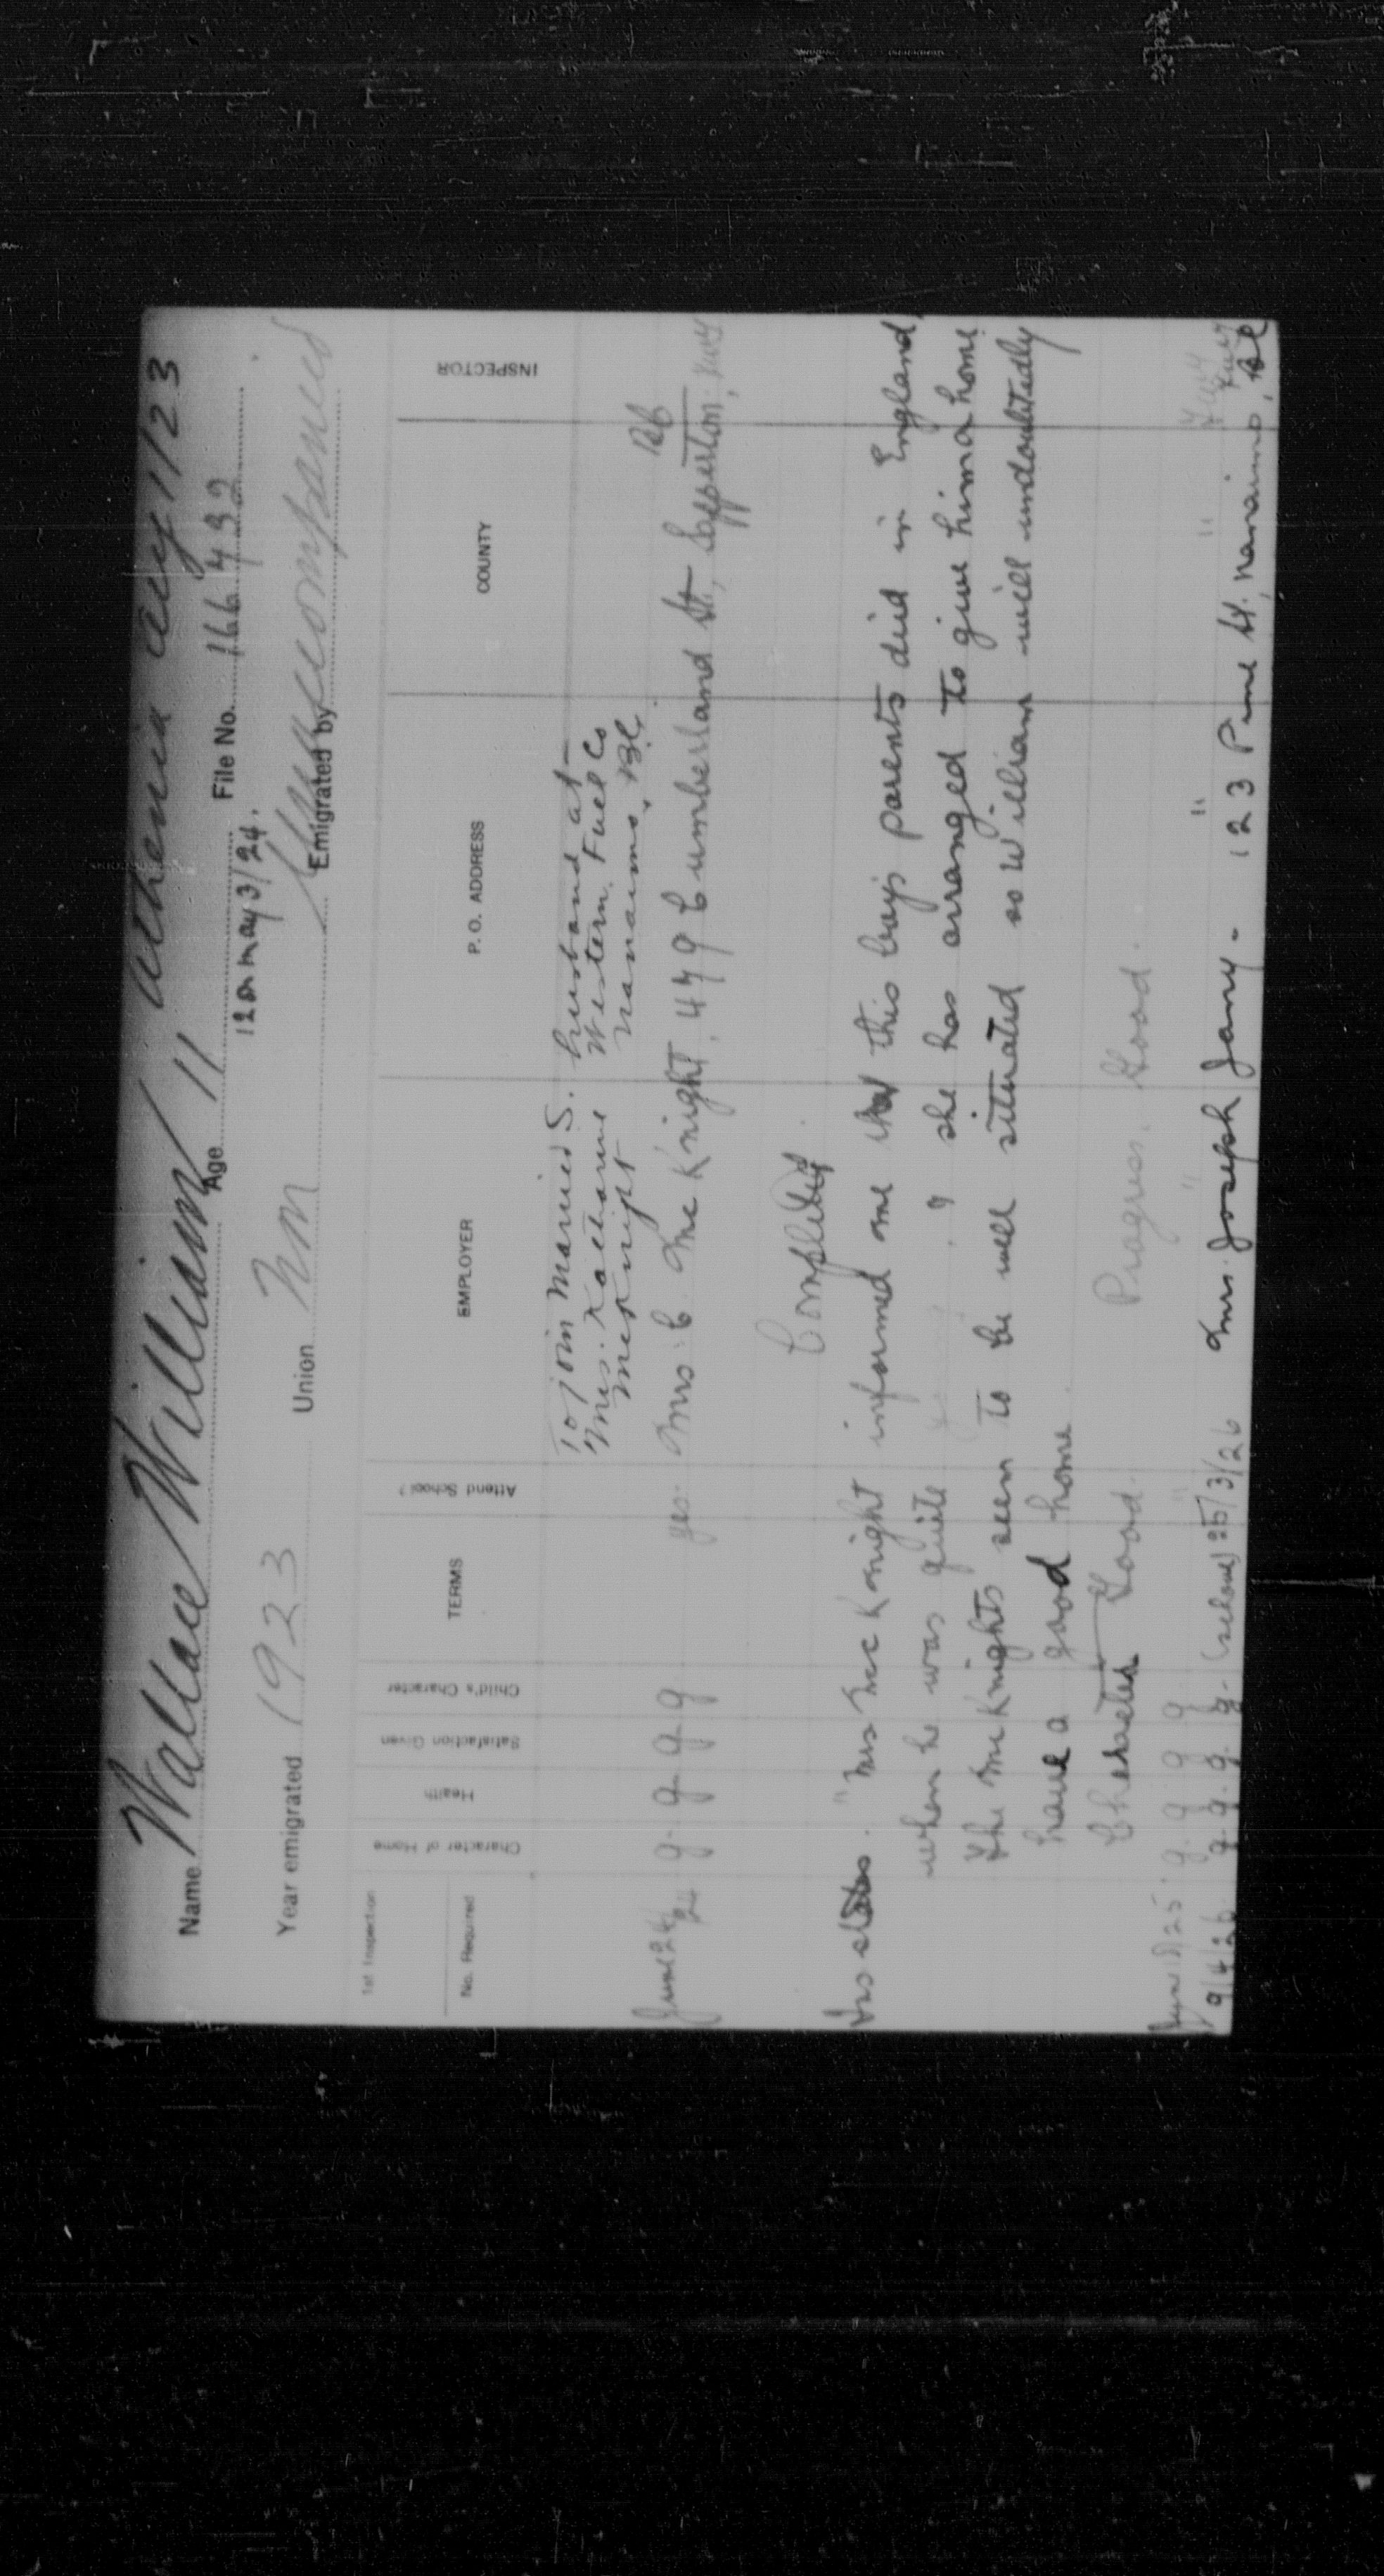 Name Wallace William / Athenia Aug 1/23
Age 11 File No. 166 492
12 on May 3/24.
Year emigrated 1923 Union Nm Emigrated by Unaccompanied
1st Inspection
No. Required
Character of Home
Health
Satisfaction Given
Child's Character
TERMS
Attend School?
EMPLOYER
P. O. ADDRESS
COUNTY
INSPECTOR
To join married S. husband at
Mrs. Katharine Western Fuel Co
McKnight Nanaimo, B.C.
June 24/24 g. g. g. g yes. Mrs. C. McKnight, 479 Cumberland St., Sapperton, BC
Completed
Mrs McKnight informed me that this boy's parents died in England,
when he was quite she has arranged to give him a home
The McKnights seem to be well situated so William will undoubtedly
have a good home.
Character Good. Progress. Good.
25. g g g g " " " "
9/4/26 g. g. g. g. (school) 25/3/26 Mrs. Joseph Jany - 123 Pine St. Nanaimo, BC